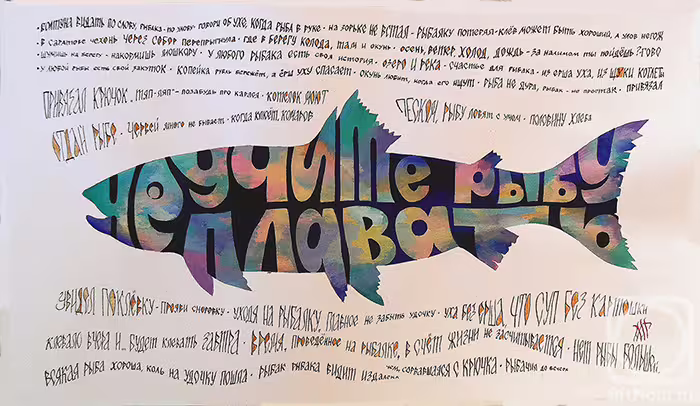 болтуна видать по слову, рыбака - по улову • говори об ухе, когда рыба в руке • на зорьке не встал - рыбалку потерял • клёв может быть хороший, а улов негож
• в Саратове чехонь через собор перепрыгнула • где в берегу колода, там и окунь • осень, ветер, холод, дождь - за налимом ты пойдёшь
на берегу - накормишь мошкару • у любого рыбака есть своя история • озеро и река • счастье для рыбака • из ерша уха, из щуки котлеты
• у любой рыбы есть свой закуток • копейка рубль бережёт, а ёрш уху спасает • окунь любит, когда его ищут • рыба не дура, рыбак - не простак • привязал
привязал крючок • тяп-ляп - позабудь про карпа • комелёк
леской, рыбу ловят с умом • половину хлеба
отдай рыбе • червей много не бывает • когда клюёт, комаров
не учите рыбу
плавать
увидел поклёвку - прояви сноровку • уходя на рыбалку, главное не забыть удочку • уха без ерша, что суп без картошки
клевало вчера и... будет клевать завтра • время, проведённое на рыбалке, в счёт жизни не засчитывается • нет рыбы больше,
чем, сорвавшаяся с крючка •
всякая рыба хороша, коль на удочку пошла • рыбак рыбака видит издалека